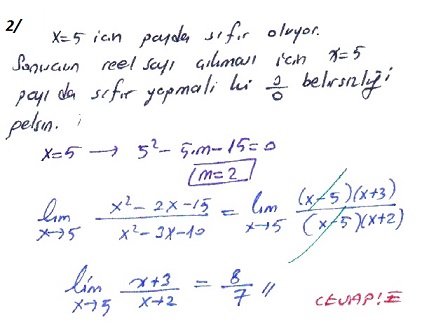 2/ x=5 için payda sıfır oluyor.
Sonucun reel sayı çıkması için x=5
payı da sıfır yapmalı ki 0/0 belirsizliği
gelsin.
x=5 → 5² - 5.m - 15 = 0
m=2
lim x→5 (x² - 2x - 15)/(x² - 3x - 10) = lim x→5 ((x-5)(x+3))/((x-5)(x+2))
lim x→5 (x+3)/(x+2) = 8/7 //
CEVAP: E